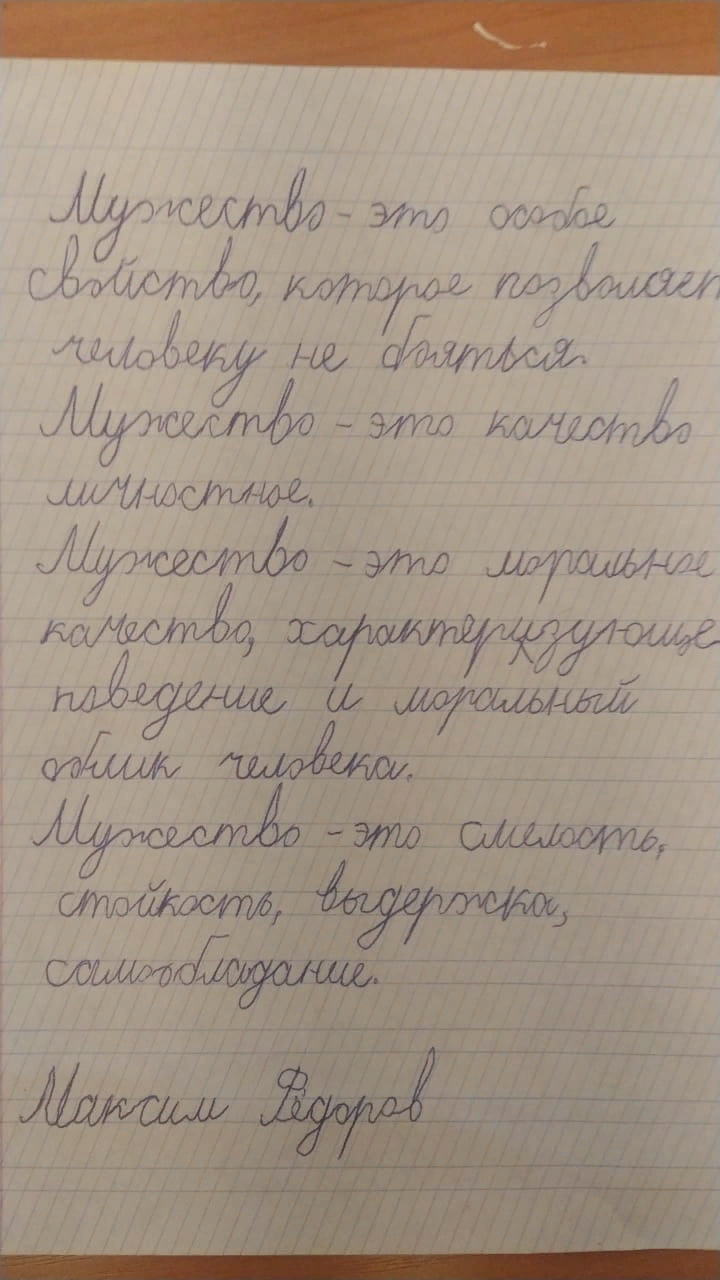 Мужество - это особое
свойство, которое позволяет
человеку не бояться.
Мужество - это качество
личностное.
Мужество - это моральное
качество, характеризующе
поведение и моральный
облик человека.
Мужество - это смелость,
стойкость, выдержка,
самообладание.
Максим Фёдоров